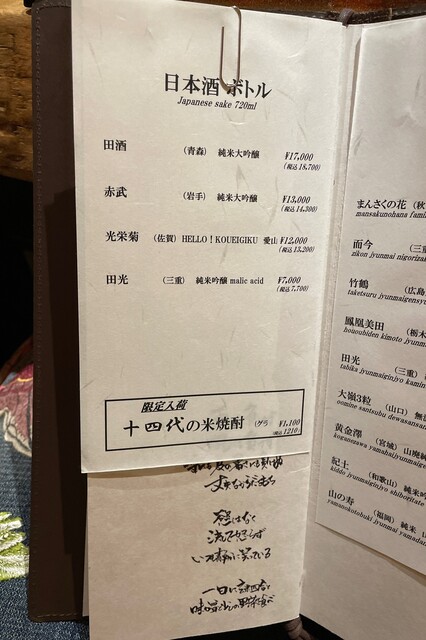 日本酒 ボトル
Japanese sake 720ml
田酒 （青森） 純米大吟醸 ¥17,000
（税込 18,700）
赤武 （岩手） 純米大吟醸 ¥13,000
（税込 14,300）
光栄菊 （佐賀） HELLO！KOUEIGIKU 愛山 ¥12,000
（税込 13,200）
田光 （三重） 純米吟醸 malic acid ¥7,000
（税込 7,700）
限定入荷
十四代の米焼酎 （グラ） ¥1,100
（税込 1210）
慾はなく
決して怒らず
いつも静かに笑っている
一日に玄米四合と
味噌と少しの野菜を食べ
まんさくの花 （秋
mansakunohana famil
而今 （三重
zikon jyunmai nigorizak
竹鶴 （広島
taketsuru jyunmaigensy
鳳凰美田 （栃木
hououbiden kimoto jyunmaid
田光 （三重）
tabika jyunmaiginjyo kamin
大嶺3粒 （山口） 無
oomine santsubu dewasansan
黄金澤 （宮城） 山廃純
koganezawa yamahaijyunmaigen
紀土 （和歌山） 純米吟
kiddo jyunmaiginjyo shiboritate
山の寿 （福岡） 純米 山
yamanokotobuki jyunmai yamadan